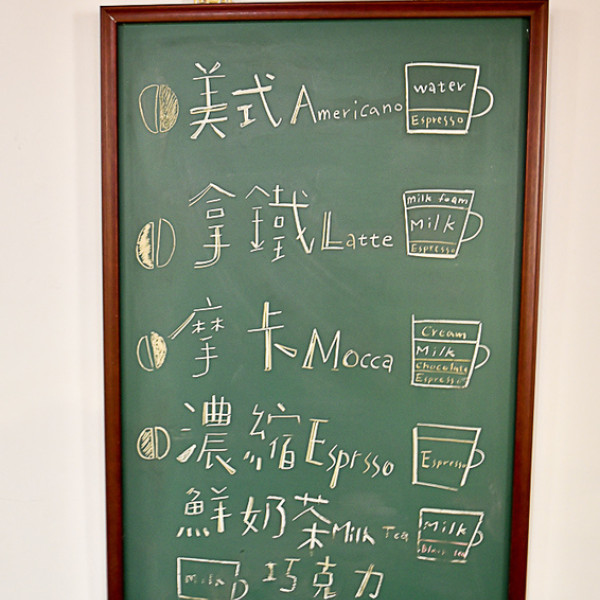 美式 Americano
water
Espresso
拿鐵 Latte
Milk foam
Milk
Espresso
摩卡 Mocca
Cream
Milk
chocolate
Espresso
濃縮 Esprsso
Espresso
鮮奶茶 Milk Tea
Milk
black tea
Milk
巧克力